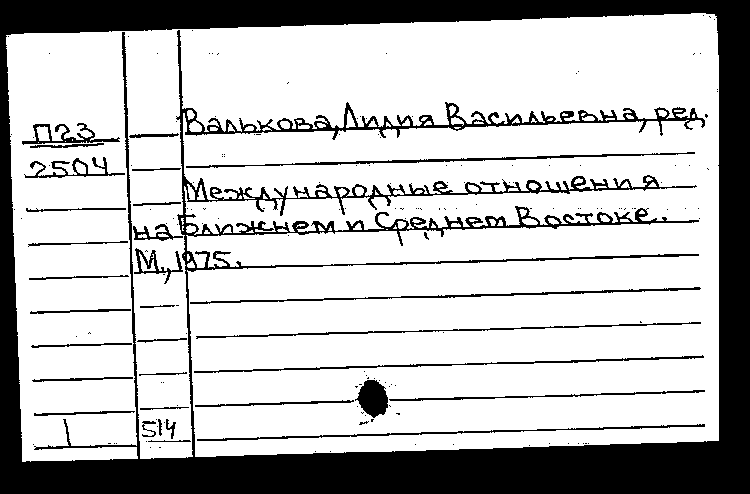 П23
2504
Валькова, Лидия Васильевна, ред.
Международные отношения
на Ближнем и Среднем Востоке.
М., 1975.
1
514